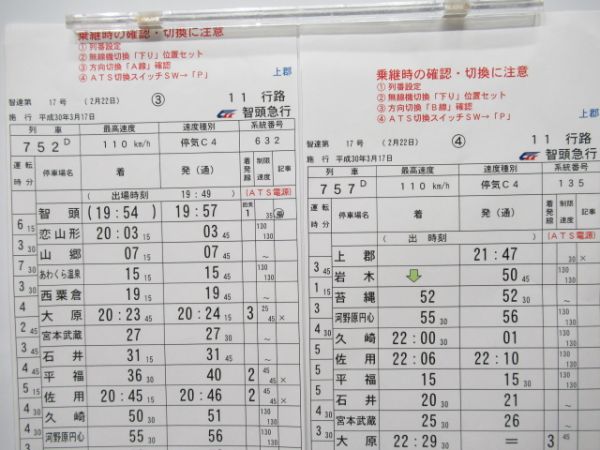 乗継時の確認・切換に注意
① 列番設定
② 無線機切換「下り」位置セット
③ 方向切換「A線」確認
④ ATS切換スイッチSW→「P」
上郡
智達第 17号 (2月22日) ③ 11 行路
施行 平成30年3月17日 智頭急行
列車 最高速度 速度種別 系統番号
752D 110 km/h 停気C4 632
運転時分 停車場名 着 発(通) 着発線 制限速度 記事
( 出場時刻 19:49 ) (ATS電源)
智頭 (19:54) 19:57
6 15 恋山形 20:03 15 03 45
4 30 山郷 07 15 07 45 ~
7 30 あわくら温泉 15 15 15 45
3 30 西粟倉 19 15 19 45 ~
4 大原 20:23 45 20:24 15 3 ×
2 45 宮本武蔵 27 27 30 ~
3 45 石井 31 15 31 45 ~
4 45 平福 36 30 40 2 ×
5 佐用 20:45 20:46 15 2 ×
久崎 50 51
4 30 河野原円心 55 30 56
乗継時の確認・切換に注意
① 列番設定
② 無線機切換「下り」位置セット
③ 方向切換「B線」確認
④ ATS切換スイッチSW→「P」
上郡
智達第 17号 (2月22日) ④ 11 行路
施行 平成30年3月17日 智頭急行
列車 最高速度 速度種別 系統番号
757D 110 km/h 停気C4 135
運転時分 停車場名 着 発(通) 着発線 制限速度 記事
( 出 時刻 ) (ATS電源)
上郡 21:47 30 ×
3 45 岩木 50 45 130 130
1 15 苔縄 52 52 30 ~
3 河野原円心 55 30 56 130 130
4 久崎 22:00 30 01 130 130
5 佐用 22:06 22:10
5 平福 15 15 30 130 130
5 石井 20 30 21 ~
4 宮本武蔵 25 30 26 ~
3 30 大原 22:29 30 = 3 45